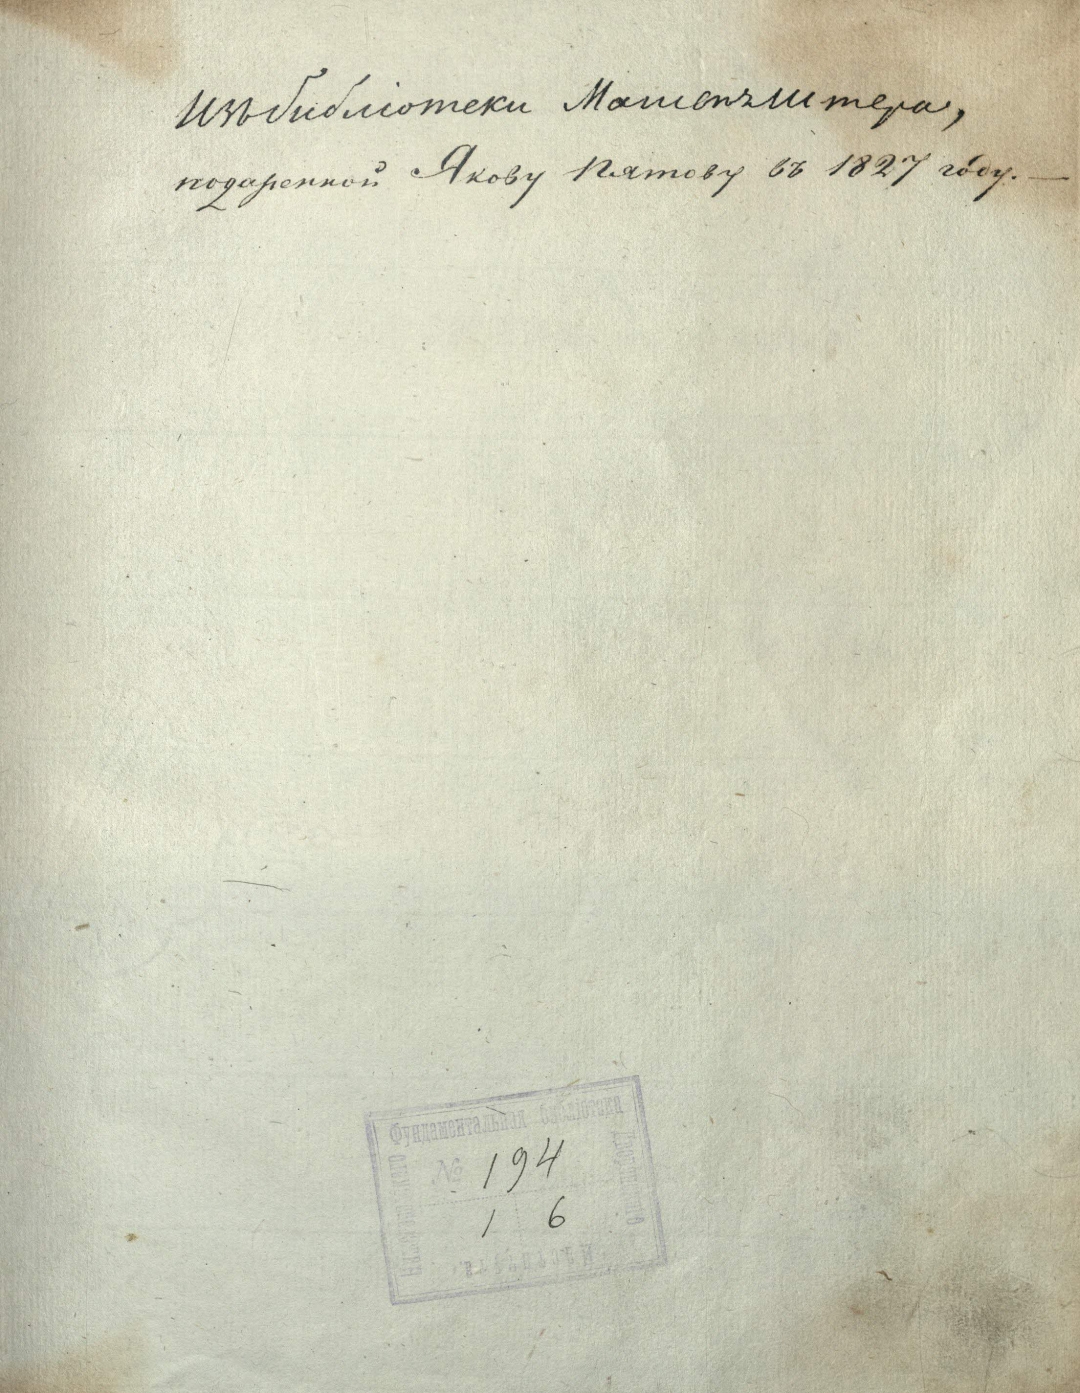 Изъ библіотеки Машенъштера,
подаренной Якову Пятову въ 1827 году. —
Фундаментальная библіотека
Дворянскаго
Института.
№ 194
1 6